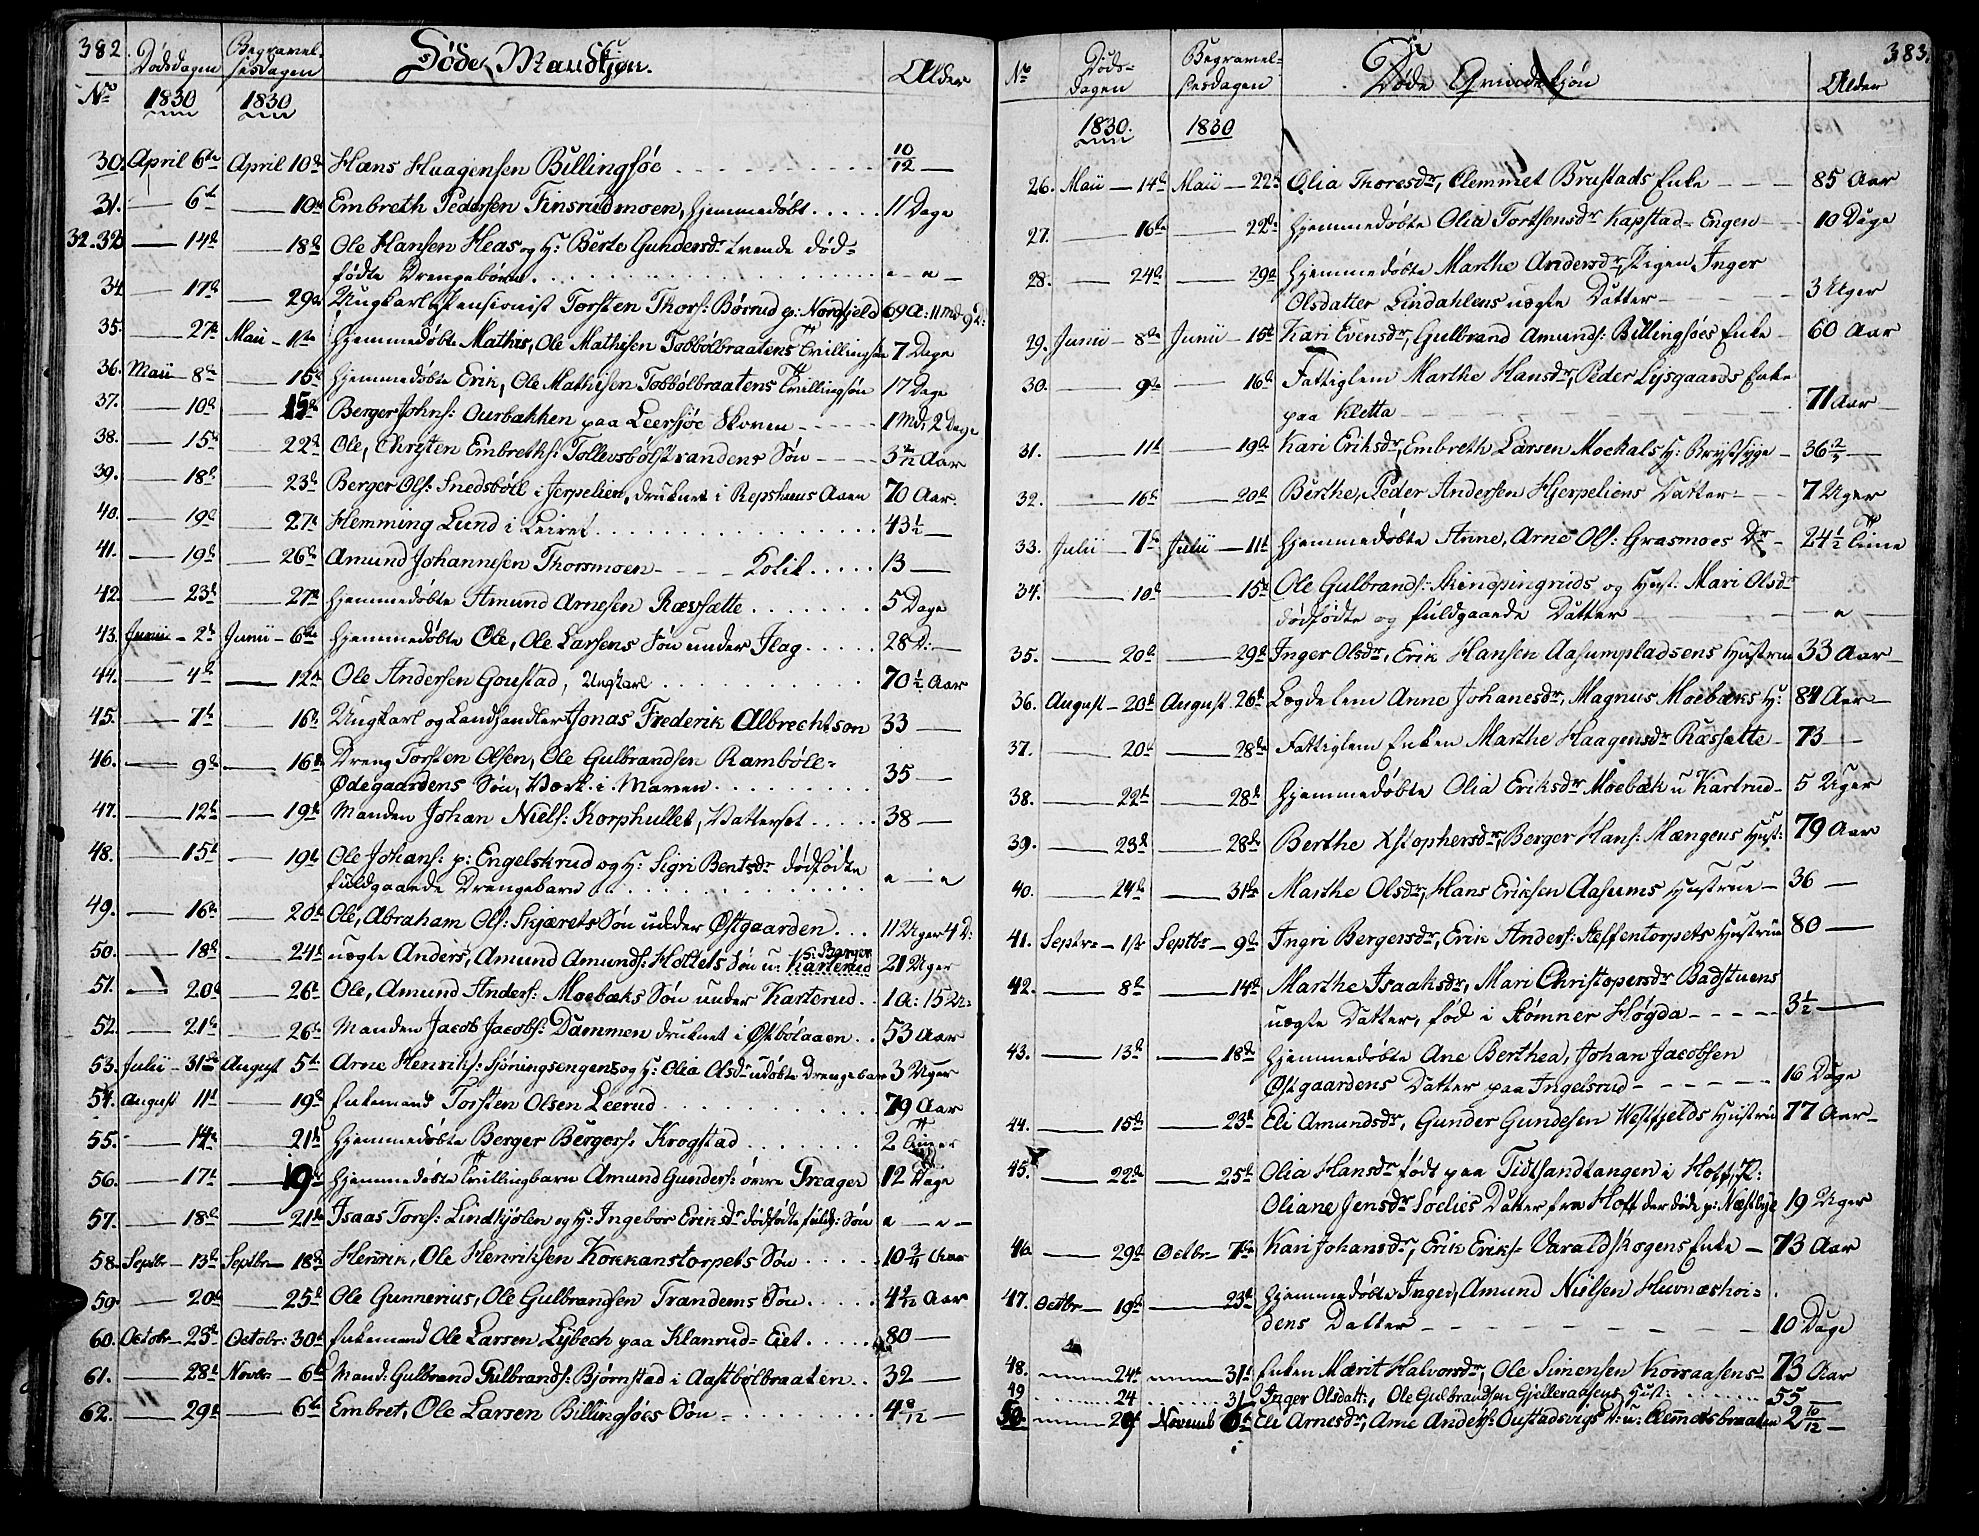 382.
Dødsdagen Begravel- Døde Mandkjøn. Alder
sesdagen
No 1830 1830
30. April 6te April 10de Hans Huagensen Billingsøe 10/12
31. — 6te — 10de Embreth Pedersen Finsrudmoen, hjemmedøbt 11 Dage
32-33 — 14de — 18de Ole Hansen Heas og H: Berte Gundersdr tvende død-
fødte Drengebørn
34 — 17de — 29de Ungkarl Pensionist Torsten Thors: Børrud p: Nordfjeld 69 A: 11 Md 9 D:
35. — 27de Maii — 1ste Hjemmedøbte Mathis, Ole Mathisen Tobbølbraatens Tvillingsøn 7 Dage
36. Maii — 8de — 15de Hjemmedøbte Erik, Ole Mathisen Tobbølbraatens Tvillingsøn 17 Dage
37. — 10de — 15de Berger Johns: Ourbakken paa Leersjøe Skoven 1 Md, 2 Dage
38. — 15de — 22de Ole, Chrysten Embreths: Tollevsbølstrandens Søn 3 2/12 Aar
39. — 18de — 23de Berger Ols: Snedsbøll i Jerpelien, druknet i Repshuus Aaen 70 Aar.
40. — 19de — 27de Hemming Lund i Leiret 43 1/2
41. — 19de — 26de Amund Johannesen Thorsmoen Kolik 13
42. — 23de — 27de Hjemmedøbte Amund Arnesen Rævsætte 5 Dage
43. Junii — 2de Junii — 6te Hjemmedøbte Ole, Ole Larsens Søn under Ilag 28 D:
44. — 4de — 12te Ole Andersen Goustad, Ungkarl 70 1/2 Aar
45. — 7de — 16de Ungkarl og Landhandler Jonas Frederik Albrechtson 33
46. — 9de — 16de Dreng Torsten Olsen, Ole Gulbrandsen Rambøll-
Ødegaardens Søn, Værk i Maven 35
47. — 12te — 19de Manden Johan Niels: Korphullet, Vatterset 38
48. — 15de — 19de Ole Johans: p: Engelskrud og H: Sigri Bentsdr dødfødte
fuldgaaende Drengebarn
49. — 16de — 20de Ole, Abraham Ols: Skjærets Søn under Østgaarden 11 Uger 4 D:
50. — 18de — 24de uægte Anders, Amund Amunds: Hottels Søn u: Karterud 21 Uger
51. — 20de — 26de Ole, Amund Anders: Moebæks Søn under Karterud 1 A: 15 U:
52. — 21de — 26de Manden Jacob Jacobs: Dammen druknet i Østbølaaen 53 Aar
53. Julii — 31te August 5te Arne Henriks: Sjøningsengens og H: Olia Olsdr udøbte Drengebarn 3 Uger
54. August 11te — 19de Enkemand Torsten Olsen Leerud 79 Aar
55. — 14de — 21de Hjemmedøbte Berger Bergers: Krogstad 2 Timer
56. — 17de — 19de Hjemmedøbte Tvillingbarn Amund Gunders: øvre Greager 12 Dage
57. — 18de — 21de Isaas Tores: Lindkjølen og H: Ingebor Eriksdr dødfødte fuldg: Søn
58. Septbr — 13de Septbr — 18de Henrik, Ole Henriksen Kokkanstorpets Søn 10 3/4 Aar
59. — 20de — 25de Ole Gunnerius, Ole Gulbrandsen Trandems Søn 4 2/12 Aar
60. Octobr — 25de Octobr: 30te Enkemand Ole Larsen Lybech paa Klanrud-Eiet 80
61. — 28de Novbr — 6te Mand: Gulbrand Gulbrands: Bjørnstad i Aastbølbraaten 32
62. — 29de — 6te Embret, Ole Larsen Billingsøes Søn 4 8/12
383.
No Døds- Begravel- Døde Qvindekjøn Alder
Dagen sesdagen
1830. 1830
26. Maii — 14de Maii — 22de Olia Thoresdr, Clemmet Brustads Enke 85 Aar
27. — 16de — 22de Hjemmedøbte Olia Tortsensdr Kapstad-Engen 10 Dage
28. — 24de — 29de Hjemmedøbte Marthe Andersdr, Pigen Inger
Olsdatter Lindahlens uægte Datter 3 Uger
29. Junii — 8de Junii — 15de Kari Evensdr, Gulbrand Amunds: Billingsøes Enke 60 Aar
30. — 9de — 16de Fattiglem Marthe Hansdr, Peder Lysgaards Enke
paa Kletta 71 Aar
31. — 11te — 19de Kari Eriksdr, Embreth Larsen Mockals H: Brystsyge 36 2/3
32. — 16de — 20de Berthe, Peder Andersen Hjerpeliens Datter 7 Uger
33. Julii — 7de Julii — 11te Hjemmedøbte Anne, Arne Ols: Grasmoes Dr 24 1/2 Time
34. — 10de — 15de Ole Gulbrands: Skinpingruds og Hust: Mari Olsdr
dødfødte og fuldgaaende Datter
35. — 20de — 29de Inger Olsdr, Erik Hansen Aasumpladsens Hustrue 33 Aar
36. August — 20de August — 26de Lægdelem Anne Johanesdr, Magnus Moebæks H: 84 Aar
37. — 20de — 28de Fattiglem Enken Marthe Haagensdr Ræfsætte 73
38. — 22de — 28de Hjemmedøbte Olia Eriksdr Moebæk u Kartrud 5 Uger
39. — 23de — 28de Berthe Xstophersdr, Berger Hans: Mængens Hust: 79 Aar
40. — 24de — 31te Marthe Olsdr, Hans Eriksen Aasums Hustrue 36
41. Septbr — 1ste Septbr — 9de Ingri Bergersdr, Erik Anders: Steffentorpets Hustrue 80
42. — 8de — 14de Marthe Isaaksdr, Mari Christopersdr Badstuens
uægte Datter, fød i Rømner Høgda 3 1/2
43. — 13de — 18de Hjemmedøbte Ane Berthea, Johan Jacobsen
Østgaardens Datter paa Ingelsrud 16 Dage
44. — 15de — 23de Eli Amundsdr, Gunder Gundesen Westfjelds Hustrue 77 Aar
45. — 22de — 25de Olia Hansdr født paa Tidtsandtangen i Hoff, P:
Oliane Jensdr Søelies Datter fra Hoff der døde p: Næstbye 19 Uger
46. — 29de Octbr — 7de Kari Johansdr, Erik Eriks: Varaldskogens Enke 73 Aar
47. Octbr — 19de — 23de Hjemmedøbte Inger, Amund Nielsen Huvnæshoi-
dens Datter 10 Dage
48. — 24de — 31te Enken Mærit Halvorsdr, Ole Simensen Korraasens 73 Aar
49 24 31 Inger Olsdatt:, Ole Gulbrandsen Gjelleraasens Hust: 55
50. — 29 Novemb 6te Eli Arnesdr, Arne Anders: Oustadsvigs D: u: Klemetsbraaten 2 10/12